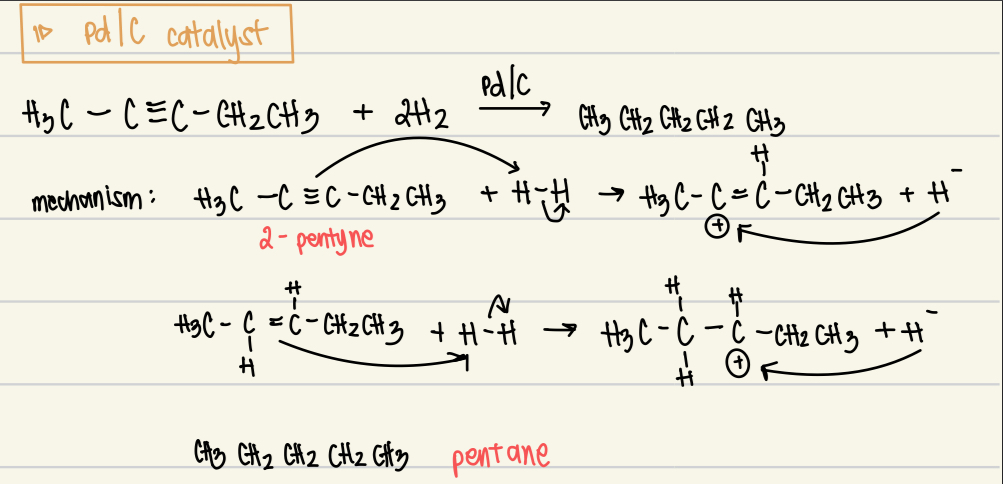 1▷ Pd/C catalyst
H₃C – C≡C–CH₂CH₃ + 2H₂ Pd/C → CH₃ CH₂ CH₂ CH₂ CH₃
H
mechanism: H₃C –C≡C–CH₂CH₃ + H–H → H₃C–C=C–CH₂CH₃ + H⁻
⊕
2-pentyne
H H H
H₃C–C=C–CH₂CH₃ + H–H → H₃C–C–C–CH₂CH₃ + H⁻
H H ⊕
CH₃ CH₂ CH₂ CH₂ CH₃ pentane